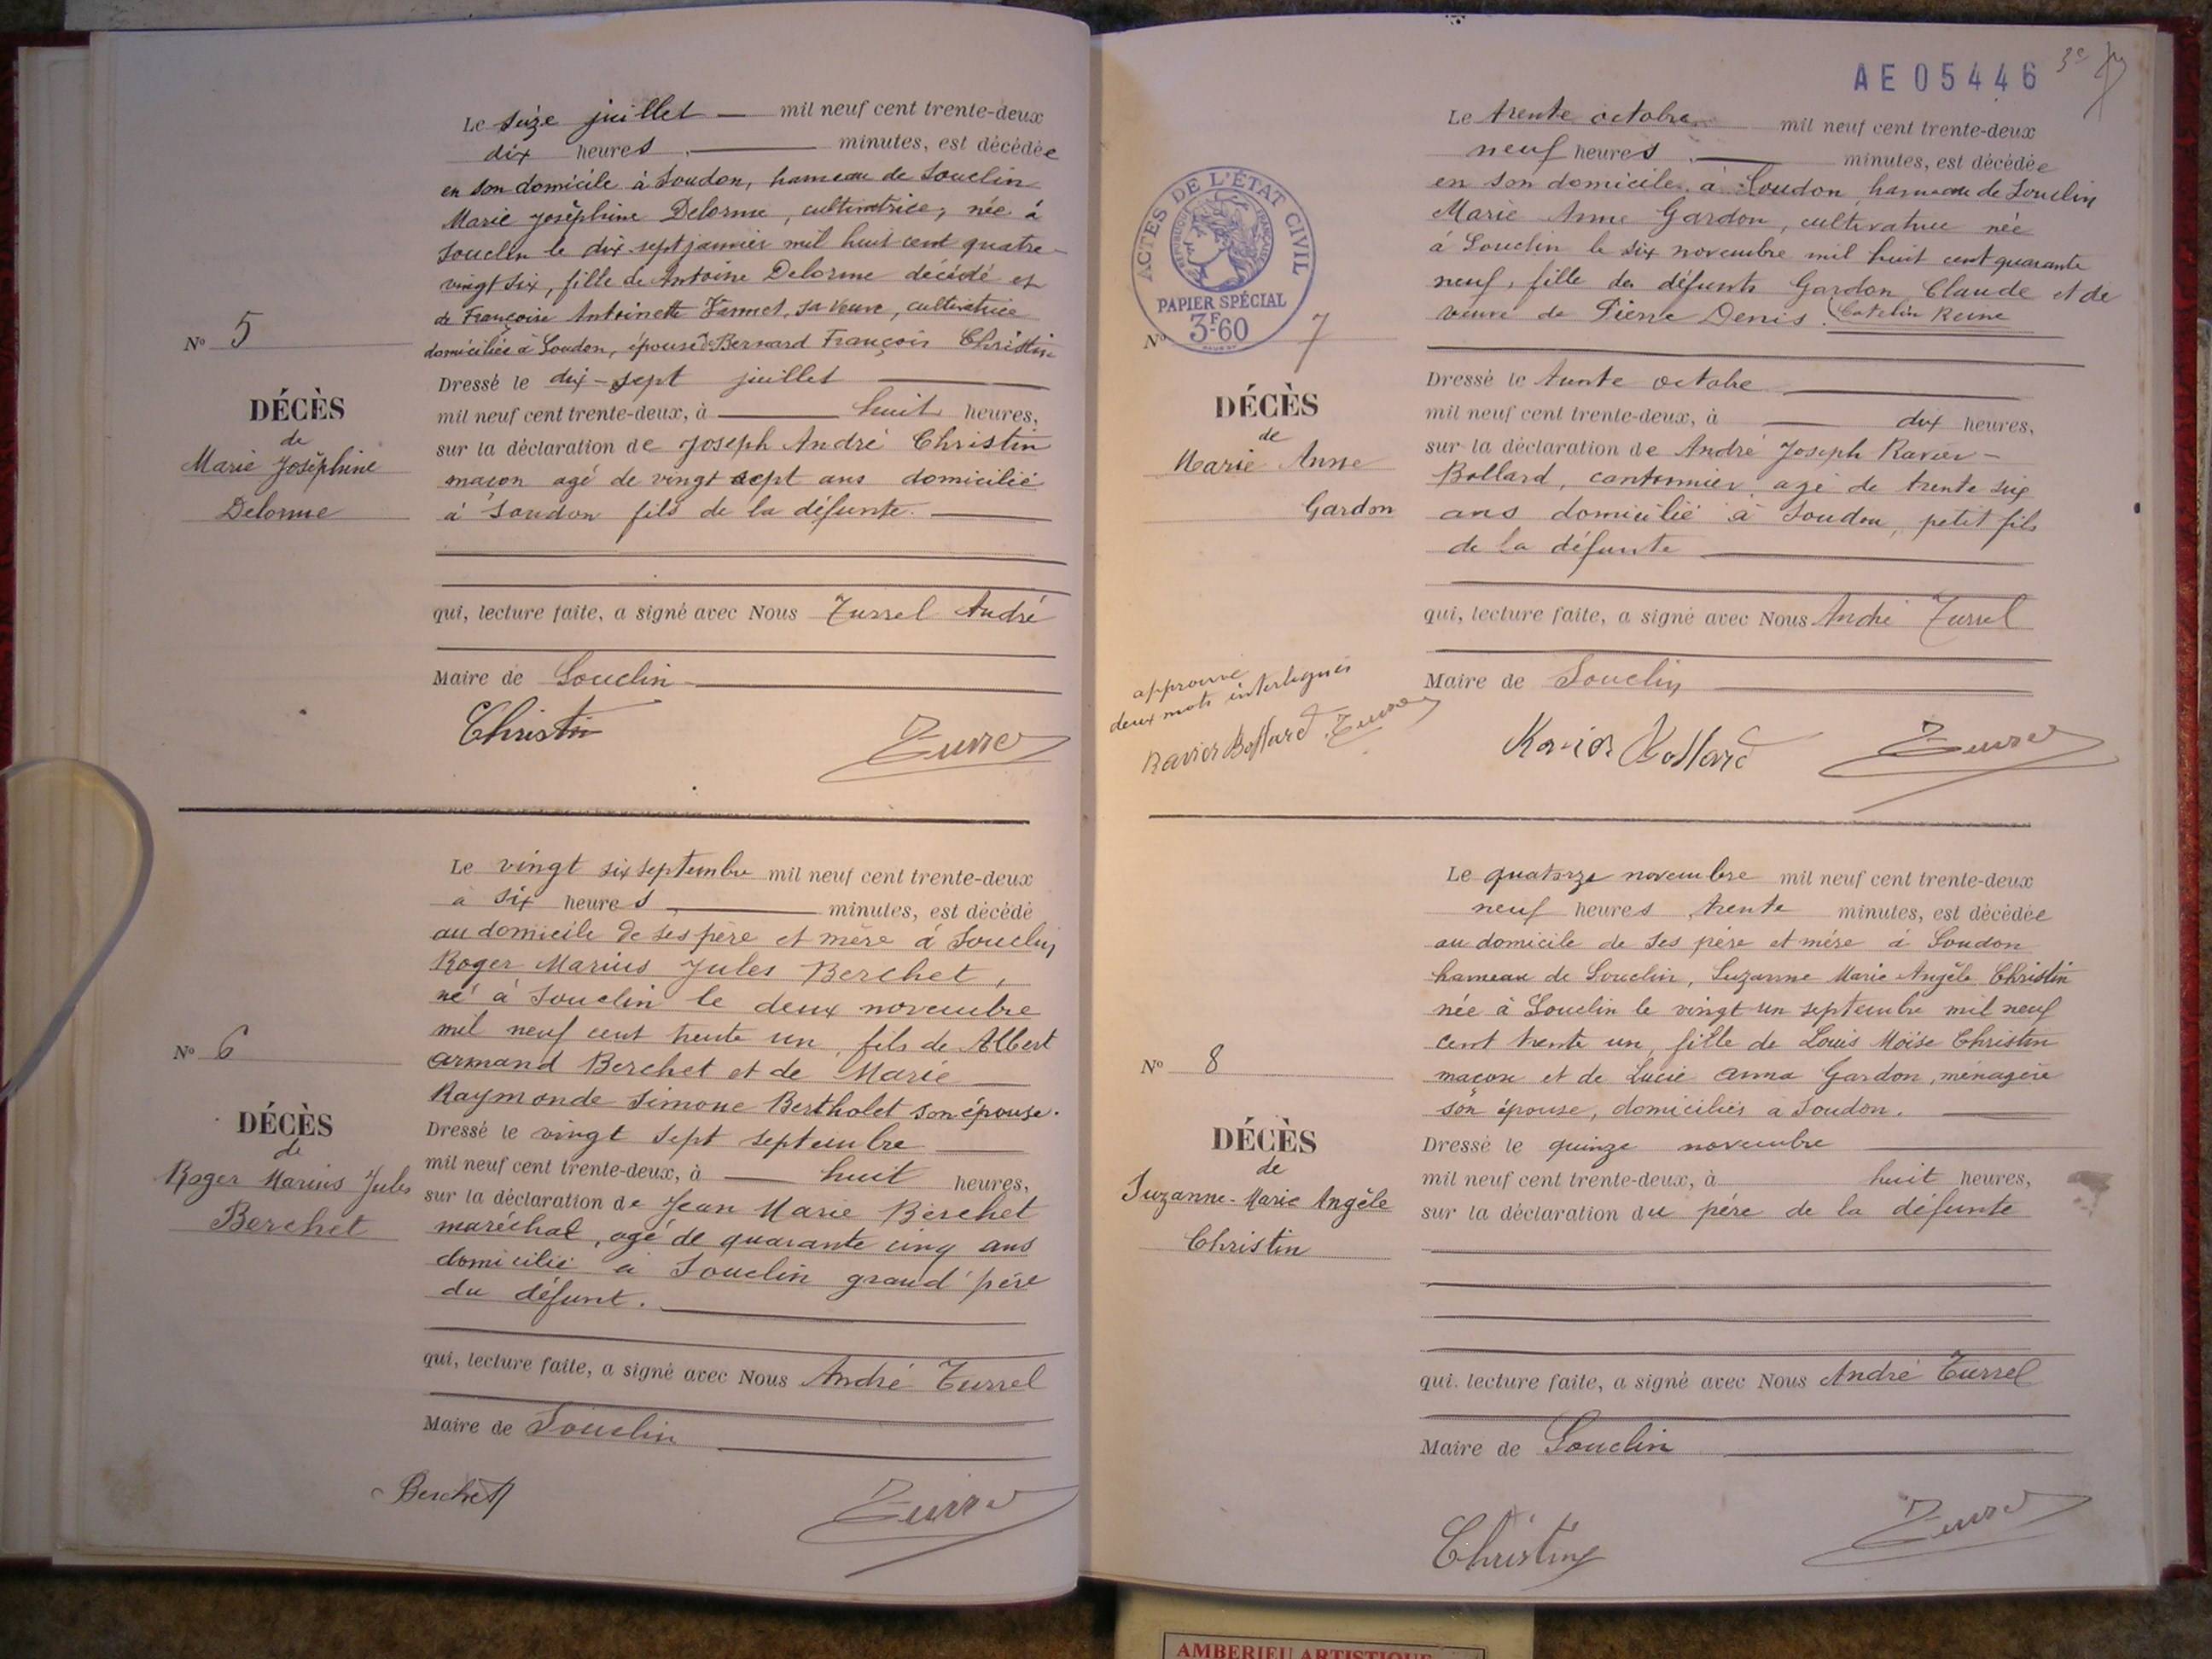 Le seize juillet — mil neuf cent trente-deux
dix heures, — minutes, est décédée
en son domicile à Soudon, hameau de Souclin
Marie Joséphine Delorme, cultivatrice, née à
Souclin le dix-sept janvier mil huit cent quatre-
vingt six, fille de Antoine Delorme décédé et
de Françoise Antoinette sa veuve, cultivatrice
domiciliés à Soudon, épouse de Bernard François Christin
N° 5
DÉCÈS
de
Marie Joséphine
Delorme
Dressé le dix-sept juillet
mil neuf cent trente-deux, à — huit heures,
sur la déclaration de Joseph André Christin
maçon agé de vingt sept ans domicilié
à Soudon fils de la défunte.
qui, lecture faite, a signé avec Nous Turrel André
Maire de Souclin
Christin Turrel
Le vingt six septembre mil neuf cent trente-deux
a six heures, — minutes, est décédé
au domicile de ses père et mère à Souclin
Roger Marius Jules Berchet,
né à Souclin le deux novembre
mil neuf cent trente un, fils de Albert
Armand Berchet et de Marie —
Raymonde Simone Bertholet son épouse.
N° 6
DÉCÈS
de
Roger Marius Jules
Berchet
Dressé le vingt sept septembre
mil neuf cent trente-deux, à — huit heures,
sur la déclaration de Jean Marie Berchet
maréchal, agé de quarante cinq ans
domicilié à Souclin grand'père
du défunt.
qui, lecture faite, a signé avec Nous André Turrel
Maire de Souclin
Berchet Turrel
AE05446
Le trente octobre mil neuf cent trente-deux
neuf heures, — minutes, est décédée
en son domicile à Soudon hameau de Souclin
Marie Anne Gardon, cultivatrice née
à Souclin le six novembre mil huit cent quarante
neuf, fille des défunts Gardon Claude et de
veuve de Pierre Denis. (Catelin Reine
ACTES DE L'ÉTAT CIVIL
RÉPUBLIQUE FRANÇAISE
PAPIER SPÉCIAL
3F60
N° 7
DÉCÈS
de
Marie Anne
Gardon
Dressé le trente octobre
mil neuf cent trente-deux, à — dix heures,
sur la déclaration de André Joseph Ravier-
Bollard, cantonnier, agé de trente six
ans domicilié à Soudon, petit fils
de la défunte
qui, lecture faite, a signé avec Nous André Turrel
Maire de Souclin
approuvé
deux mots interlignés
Ravier Bollard Turrel
Ravier Bollard Turrel
Le quatorze novembre mil neuf cent trente-deux
neuf heures, trente minutes, est décédée
au domicile de ses père et mère à Soudon
hameau de Souclin, Suzanne Marie Angèle Christin
née à Souclin le vingt un septembre mil neuf
cent trente un, fille de Louis Moïse Christin
maçon et de Lucie Anna Gardon, ménagère
son épouse, domiciliés à Soudon.
N° 8
DÉCÈS
de
Suzanne-Marie Angèle
Christin
Dressé le quinze novembre
mil neuf cent trente-deux, à huit heures,
sur la déclaration du père de la défunte
qui, lecture faite, a signé avec Nous André Turrel
Maire de Souclin
Christin Turrel
AMBERIEU ARTISTIQUE